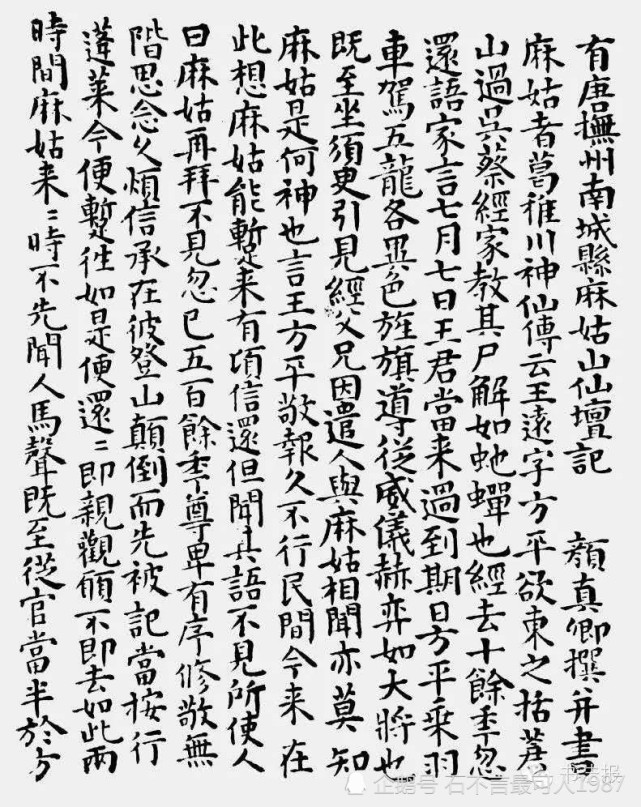 有唐撫州南城縣麻姑山仙壇記 顏真卿撰并書
麻姑者葛稚川神仙傳云王遠字方平欲東之括蒼
山過吳蔡經家教其尸解如虵蟬也經去十餘季忽
還語家言七月七日王君當来過到期日方平乘羽
車駕五龍各異色旌旗導從威儀赫弈如大將也
既至坐須臾引見經父兄因遣人與麻姑相聞亦莫知
麻姑是何神也言王方平敬報久不行民間今来在
此想麻姑能暫来有頃信還但聞其語不見所使人
曰麻姑再拜不見忽已五百餘季尊卑有序修敬無
階思念久煩信承在彼登山顛倒而先被記當按行
蓬萊今便暫往如是便還〻即親觀願不即去如此兩
時間麻姑来〻時不先聞人馬聲既至從官當半於方
企鹅号 石不言最可人1987